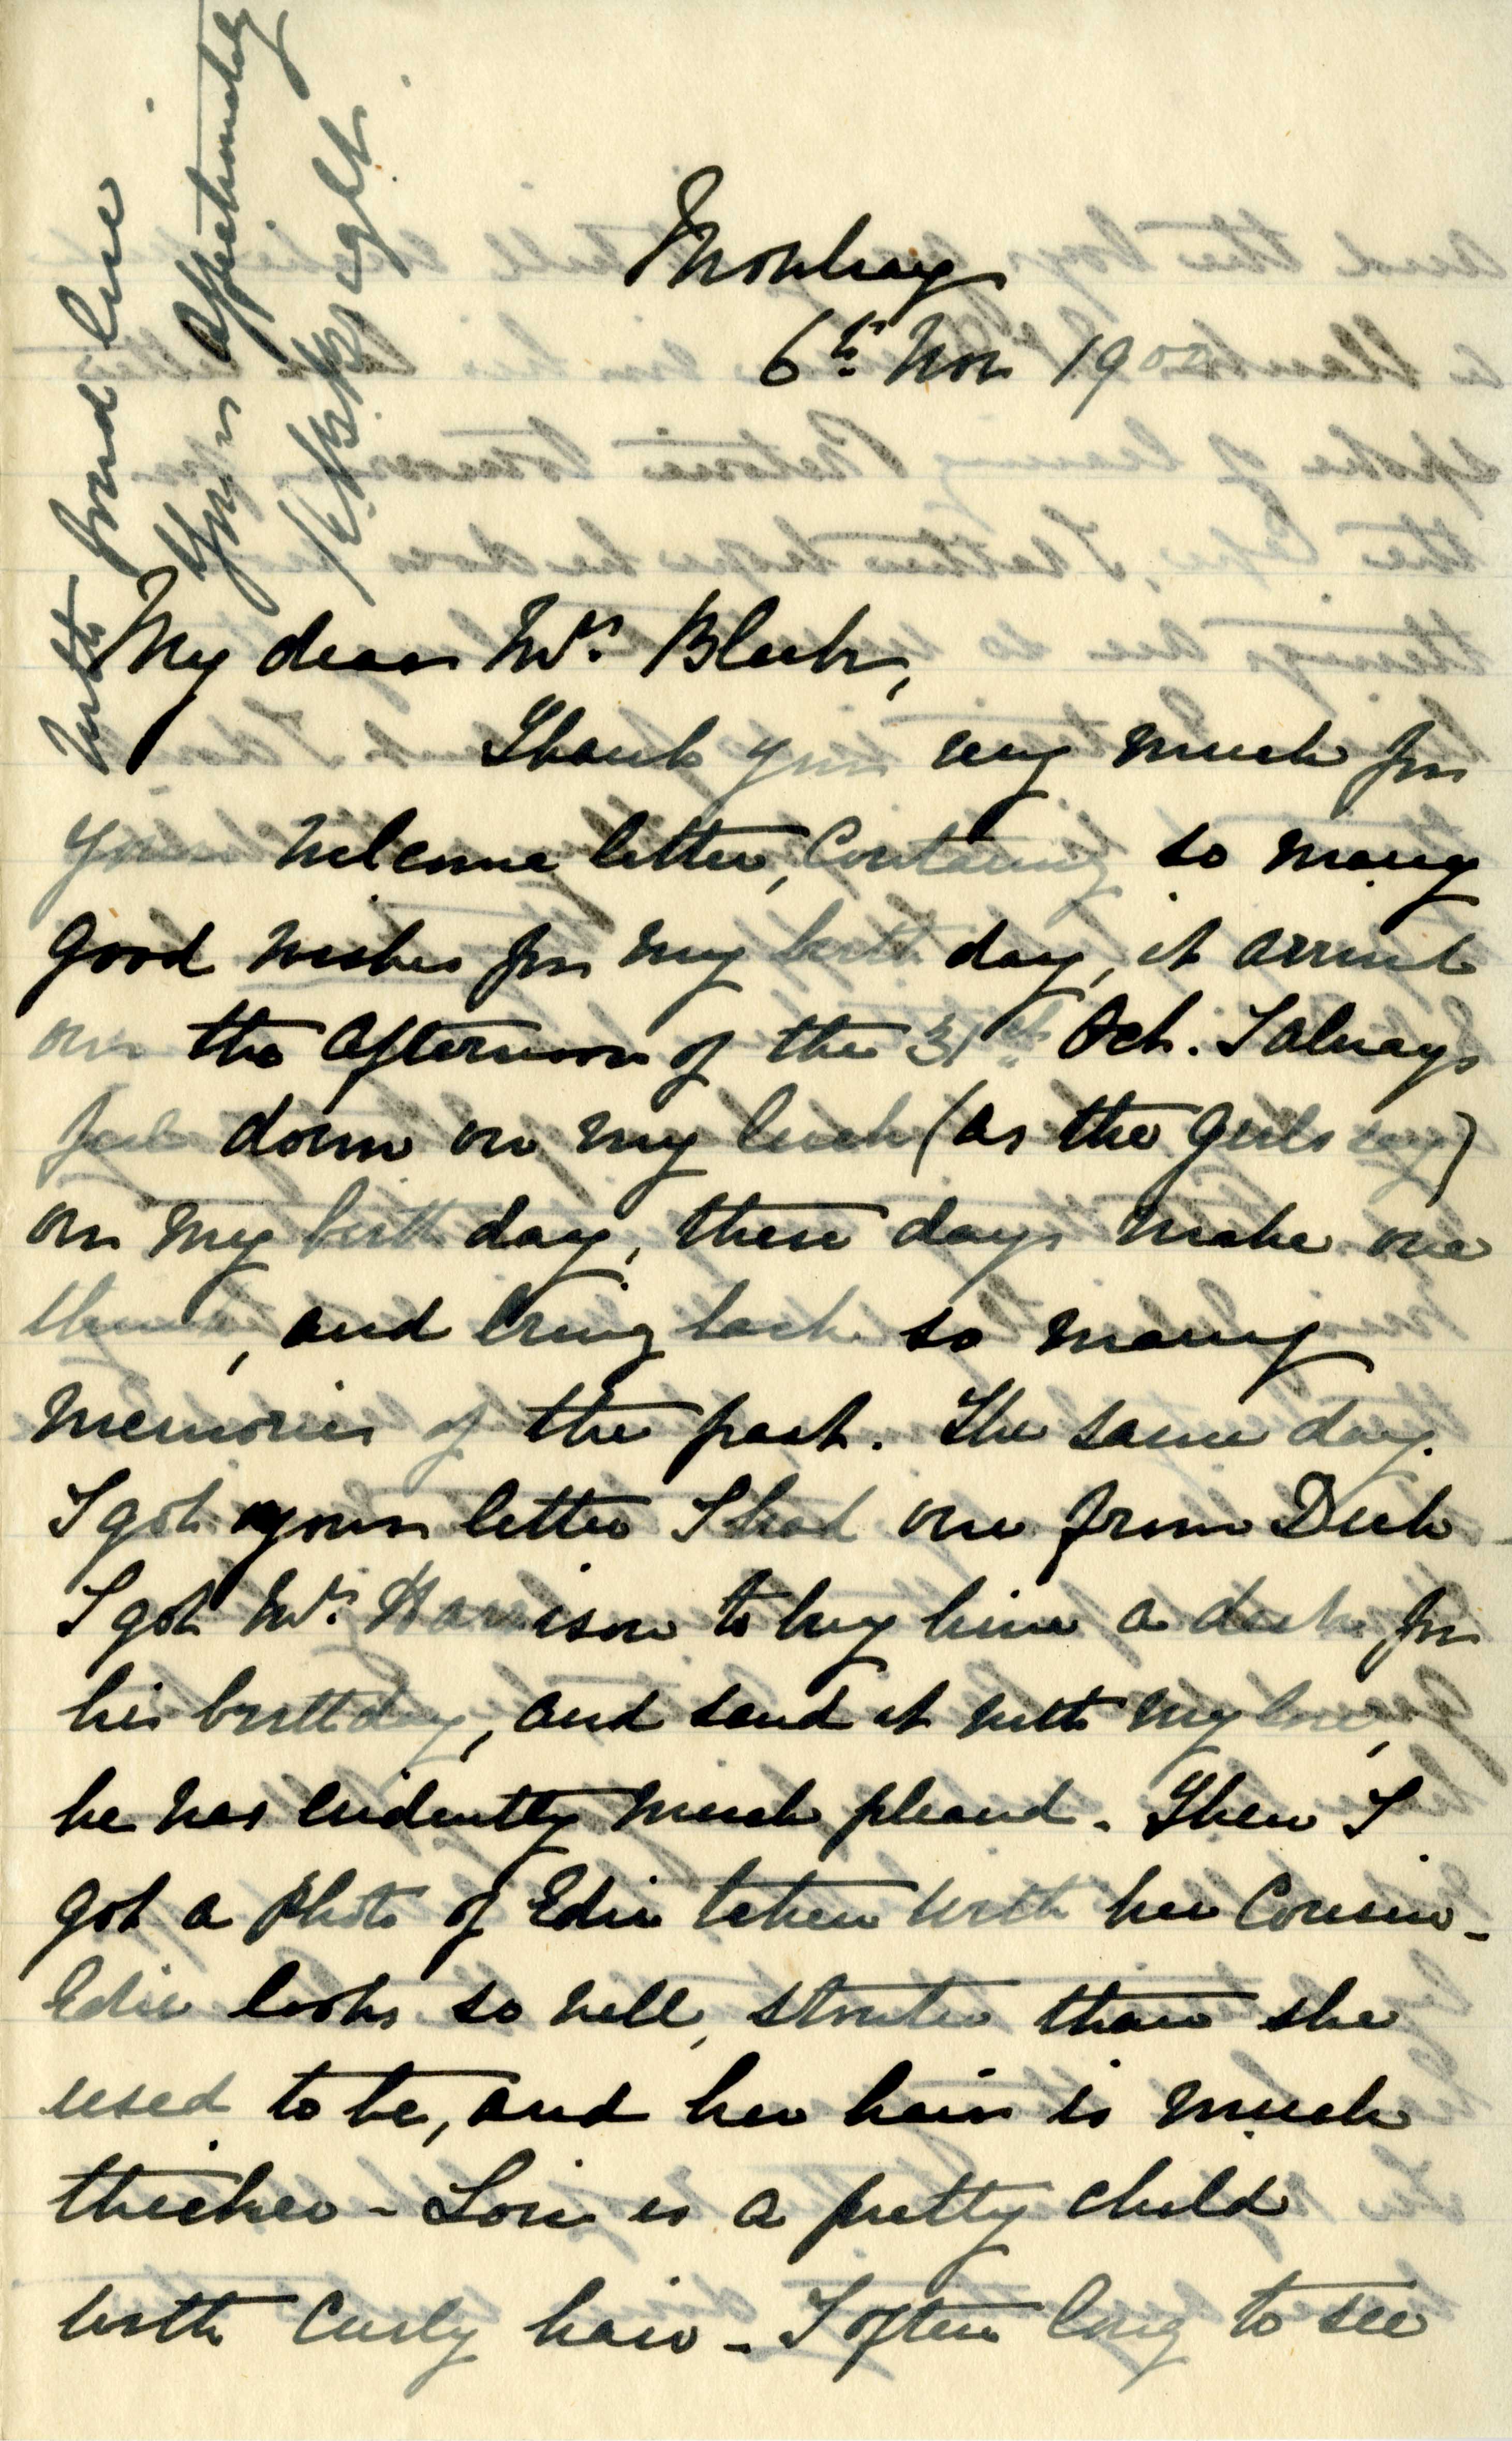 Mowbray
6th Nov 1900
My dear Mrs. Bleek,
Thank you very much for
your welcome letter, containing so many
good wishes for my birth day, it arrived
on the afternoon of the 31st Oct. I always
feel down on my luck (as the girls say)
on my birth day, these days make one
think, and bring back so many
memories of the past. The same day
I got your letter I had one from Dick -
I got Mrs. Harrison to buy him a desk for
his birthday, and send it with my love,
he was evidently much pleased. Then I
got a photo of Edie taken with her Cousin -
Edie looks so well, stouter than she
used to be, and her hair is much
thicker - Lois is a pretty child
with curly hair - I often long to see
With fond love
Yours affectionately